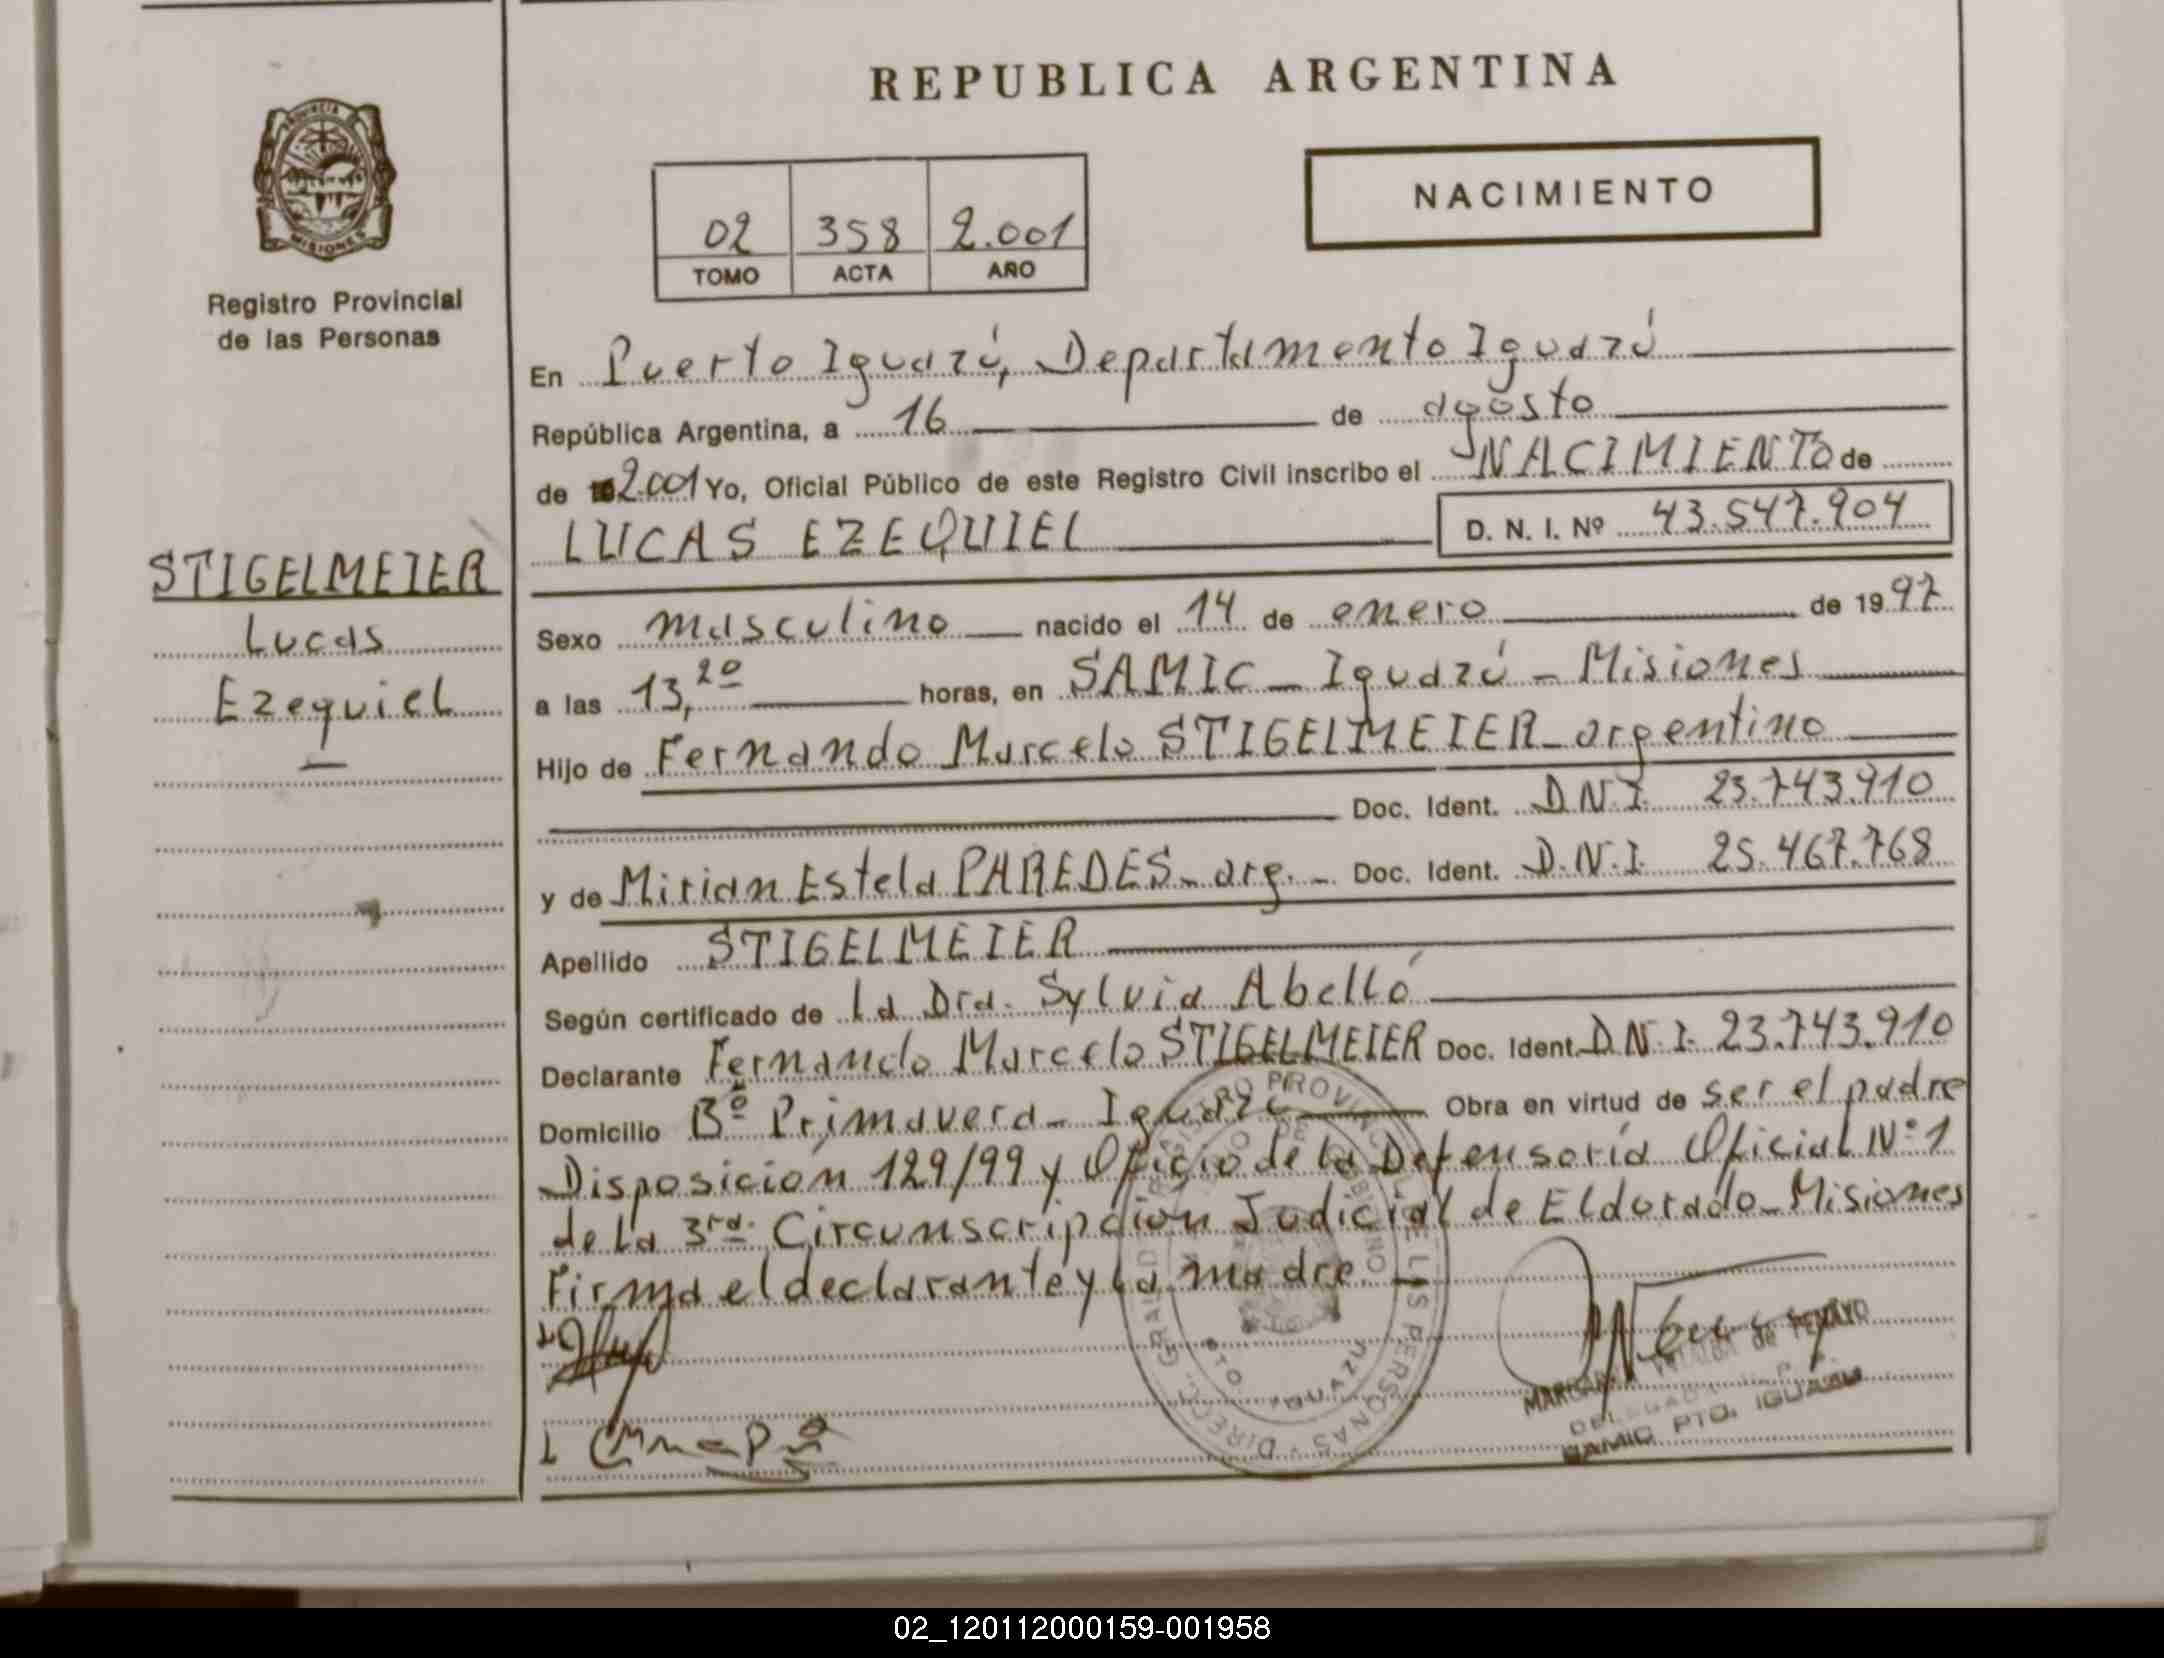 REPUBLICA ARGENTINA
PROVINCIA
MISIONES
Registro Provincial
de las Personas
NACIMIENTO
02 358 2.001
TOMO ACTA AÑO
STIGELMEIER
Lucas
Ezequiel
En Puerto Iguazú, Departamento Iguazú
República Argentina, a 16 de agosto
de 2.001 Yo, Oficial Público de este Registro Civil inscribo el NACIMIENTO de
LUCAS EZEQUIEL D. N. I. Nº 43.547.904
Sexo masculino nacido el 14 de enero de 1997
a las 13,20 horas, en SAMIC - Iguazú - Misiones
Hijo de Fernando Marcelo STIGELMEIER - argentino
Doc. Ident. D.N.I. 23.743.910
y de Mirian Estela PAREDES - arg. - Doc. Ident. D.N.I. 25.467.768
Apellido STIGELMEIER
Según certificado de la Dra. Sylvia Abelló
Declarante Fernando Marcelo STIGELMEIER Doc. Ident. D.N.I. 23.743.910
Domicilio Bº Primavera - Iguazú Obra en virtud de ser el padre
Disposición 129/99 y Oficio de la Defensoría Oficial Nº 1
de la 3ra. Circunscripción Judicial de Eldorado - Misiones
Firma el declarante y la madre
DIRECC. GRAL. REGISTRO PROVINCIAL DE LAS PERSONAS
PTO. IGUAZU
SAMIC PTO. IGUAZU
02_120112000159-001958